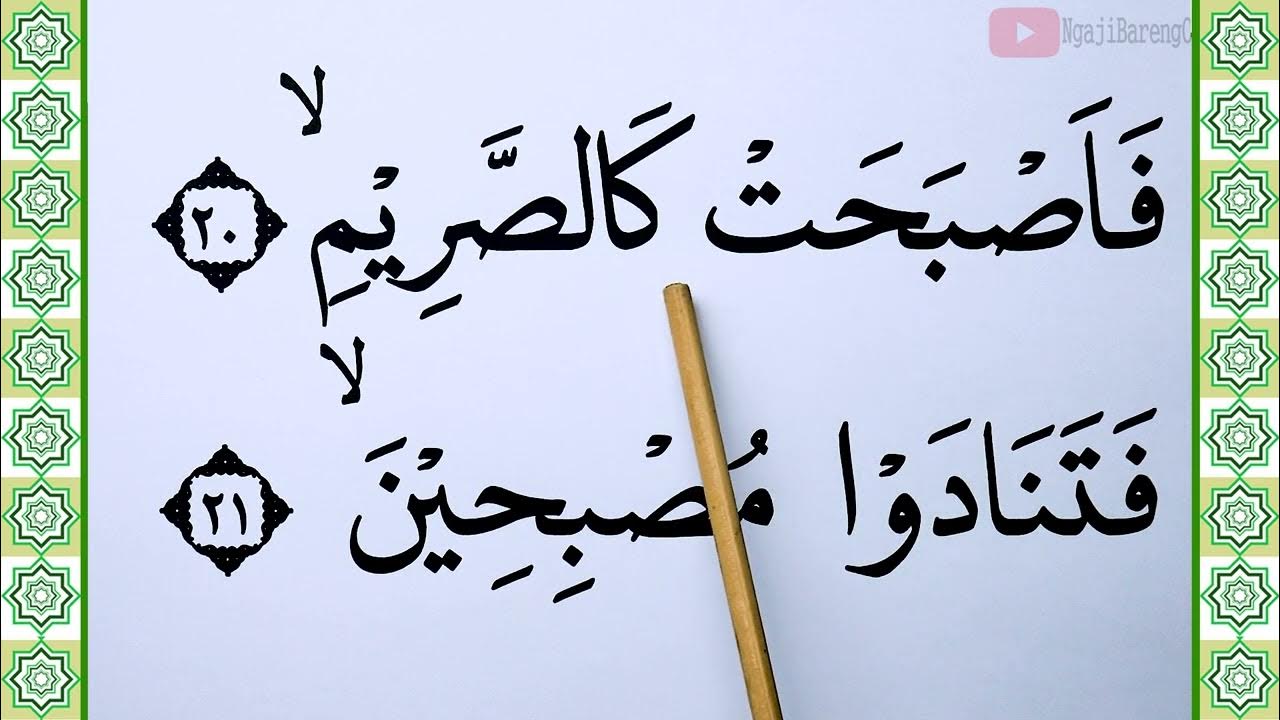 NgajiBarengC
فَاَصْبَحَتْ كَالصَّرِيْمِ ۙ ٢٠
فَتَنَادَوْا مُصْبِحِيْنَ ۙ ٢١